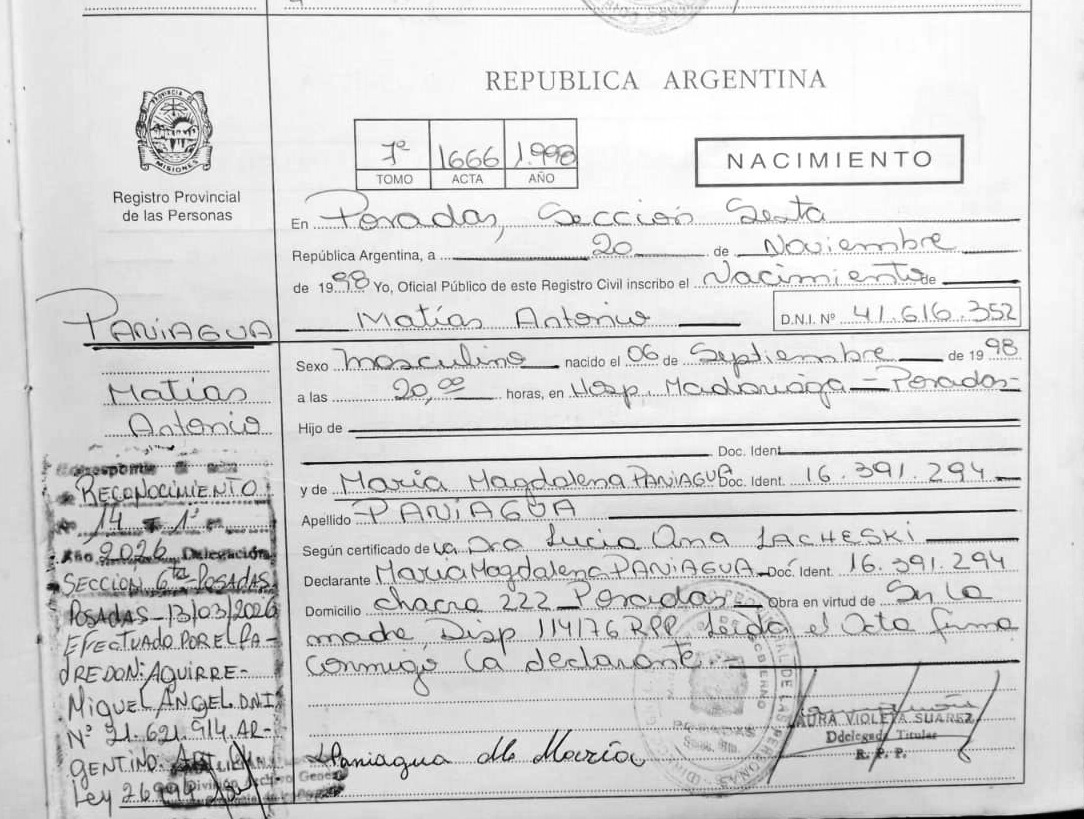 REPUBLICA ARGENTINA
PROVINCIA DE
MISIONES
Registro Provincial
de las Personas
7º 1666 1.998
TOMO ACTA AÑO
NACIMIENTO
En Posadas, Sección Sexta
República Argentina, a 20 de Noviembre
de 1998 Yo, Oficial Público de este Registro Civil inscribo el Nacimiento de
Matías Antonio D.N.I. Nº 41.616.352
Sexo masculino nacido el 06 de Septiembre de 1998
a las 20,00 horas, en Hosp. Madariaga - Posadas-
Hijo de
Doc. Ident.
y de María Magdalena PANIAGUA Doc. Ident. 16.391.294
Apellido PANIAGUA
Según certificado de la Dra Lucia Ana LACHESKI
Declarante María Magdalena PANIAGUA Doc. Ident. 16.391.294
Domicilio chacra 222 Posadas Obra en virtud de Sn la
madre, Disp 114/76 RPP, Leida el Acta firma
conmigo la declarante.-
Paniagua M María
LAURA VIOLETA SUAREZ
Ddelegada Titular
R. P. P.
PANIAGUA
Matías
Antonio
Corresponde
RECONOCIMIENTO
14 1º
Año 2026 Delegación
SECCION 6ta POSADAS
POSADAS - 13/03/2026
EFECTUADO POR EL PA-
DRE DON: AGUIRRE-
MIGUEL ÁNGEL. DNI
Nº 21.621.914. AR-
GENTINO.
Ley